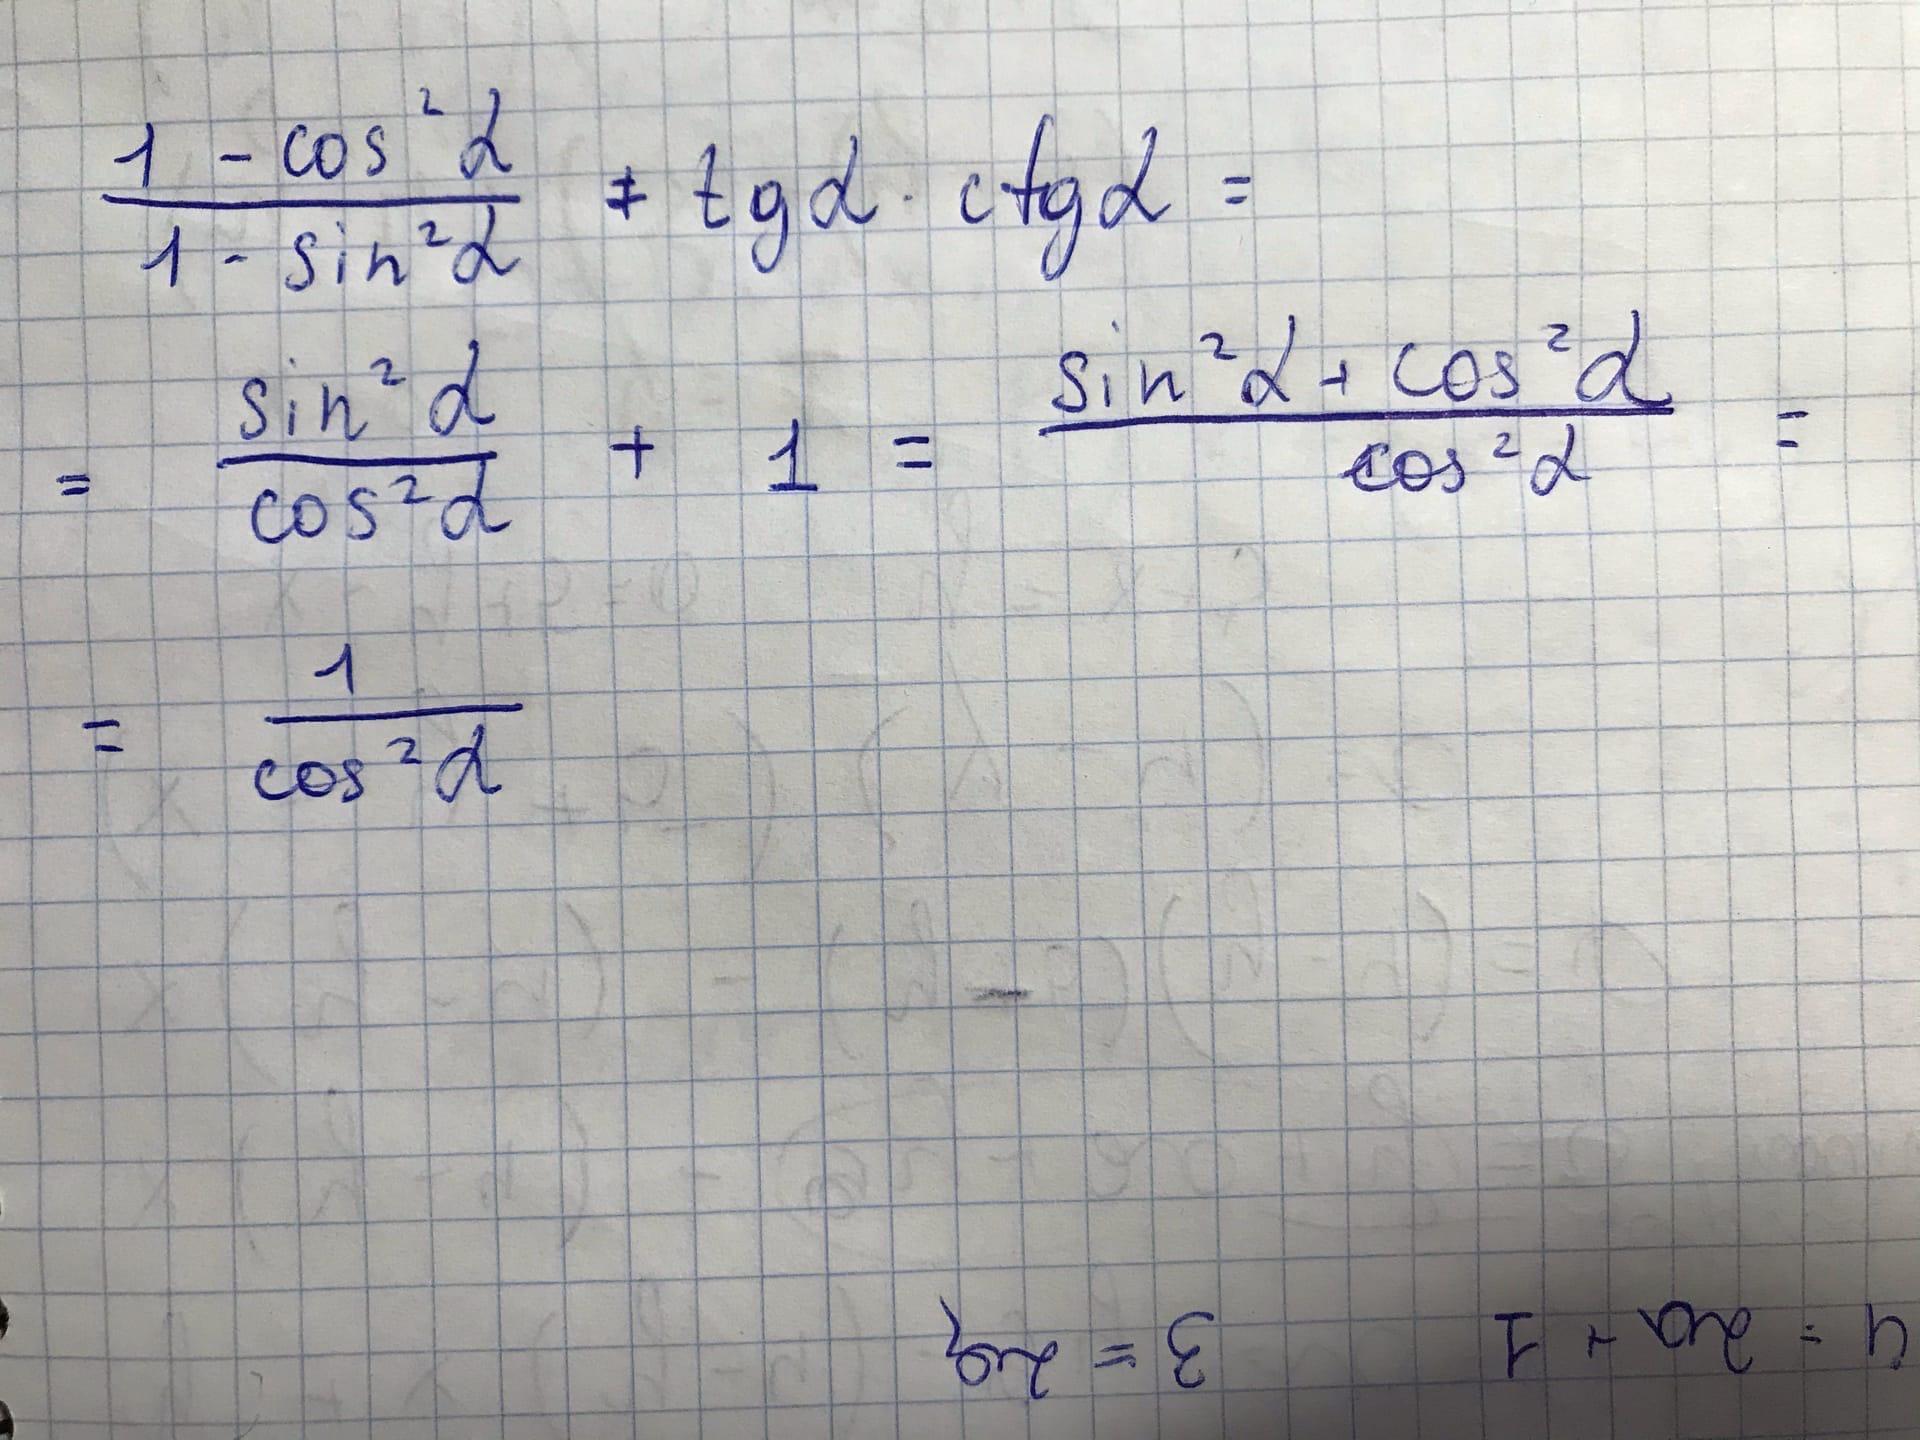 (1 - cos²α)/(1 - sin²α) + tgα · ctgα =
= sin²α/cos²α + 1 = (sin²α + cos²α)/cos²α =
= 1/cos²α
4 = 2a + 1
3 = 2a